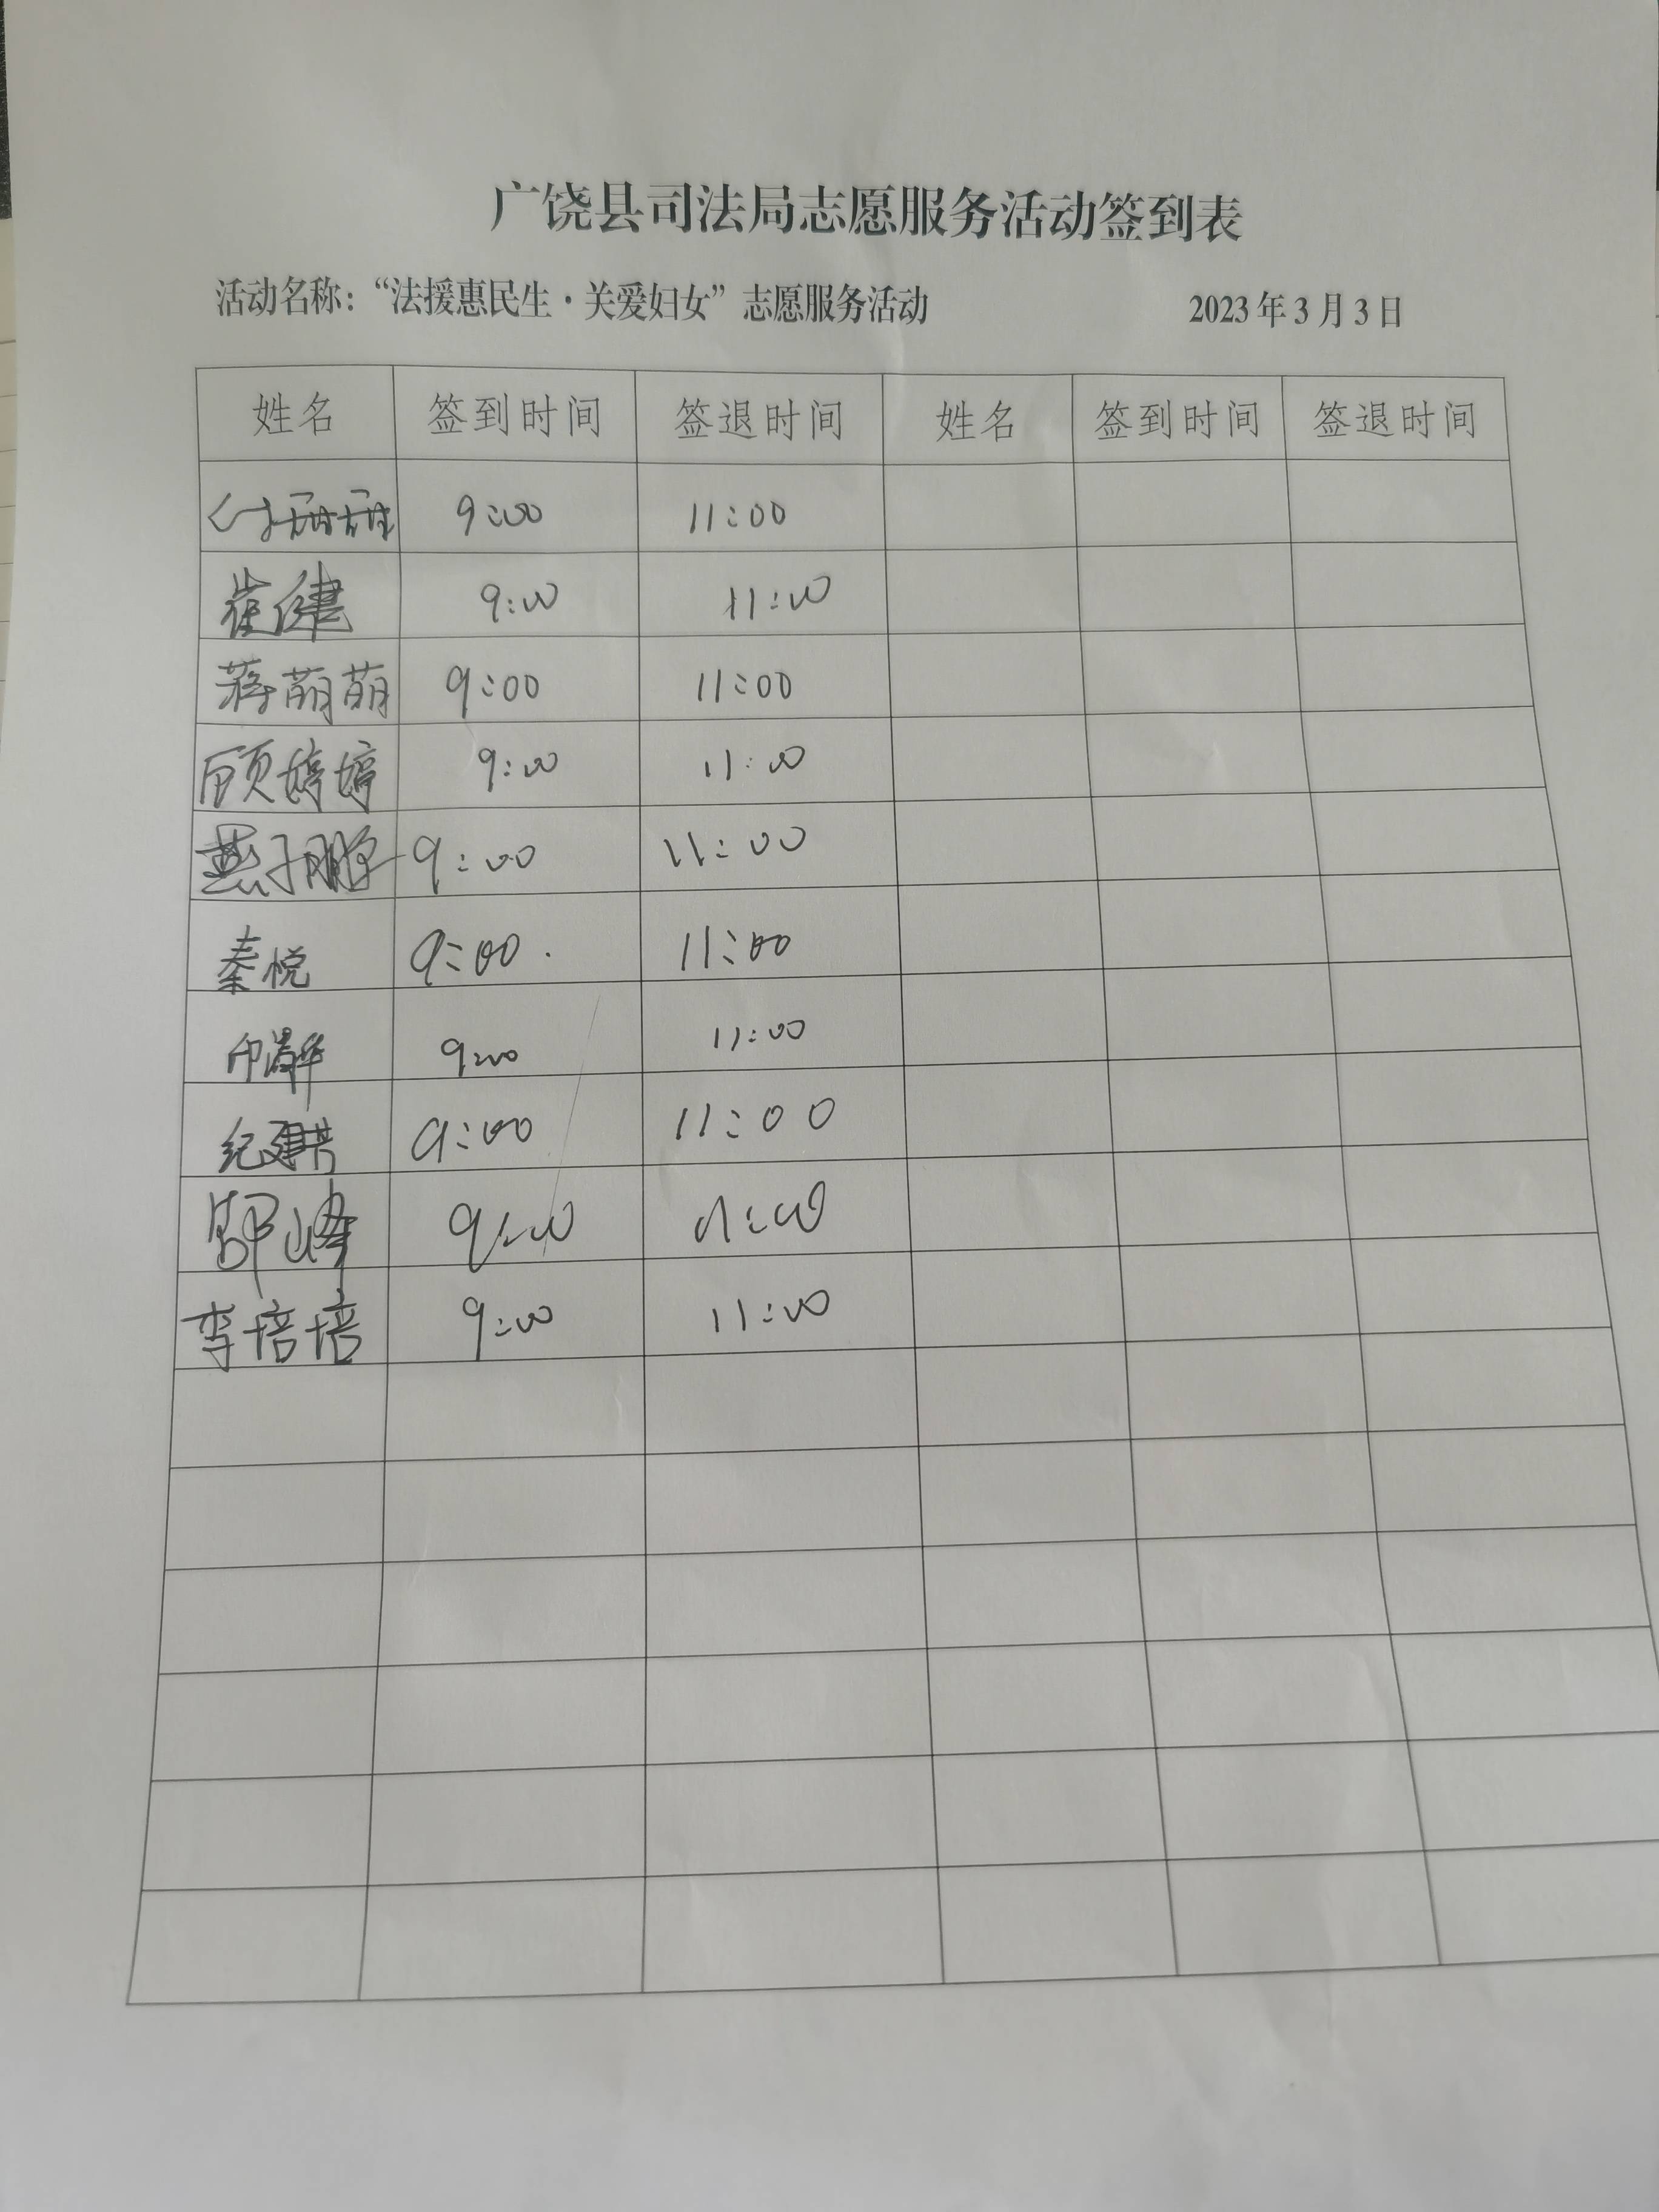 广饶县司法局志愿服务活动签到表
活动名称：“法援惠民生·关爱妇女”志愿服务活动 2023年3月3日
姓名 签到时间 签退时间 姓名 签到时间 签退时间
9:00 11:00
崔健 9:00 11:00
蒋萌萌 9:00 11:00
顾婷婷 9:00 11:00
燕子鹏 9:00 11:00
秦悦 9:00 11:00
9:00 11:00
9:00 11:00
峰 9:00 11:00
李培培 9:00 11:00